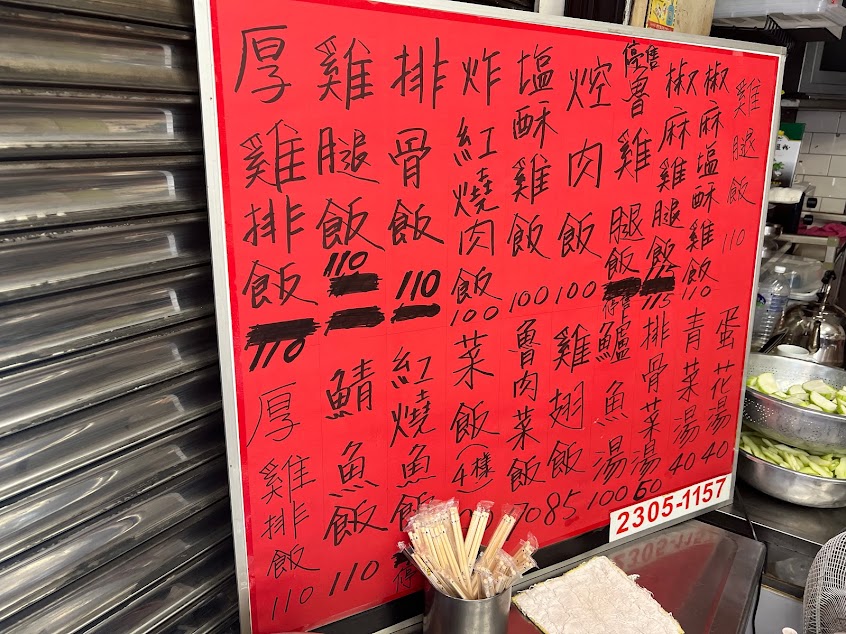 厚雞排飯110
雞腿飯110
排骨飯110
炸紅燒肉飯100
塩酥雞飯100
焢肉飯100
停售魯雞腿飯停售
椒麻雞腿飯115
椒麻塩酥雞飯110
雞腿飯110
厚雞排飯110
鯖魚飯110
紅燒魚飯
菜飯(4樣)
魯肉菜飯
雞翅飯85
鱸魚湯100
排骨菜湯60
青菜湯40
蛋花湯40
2305-1157